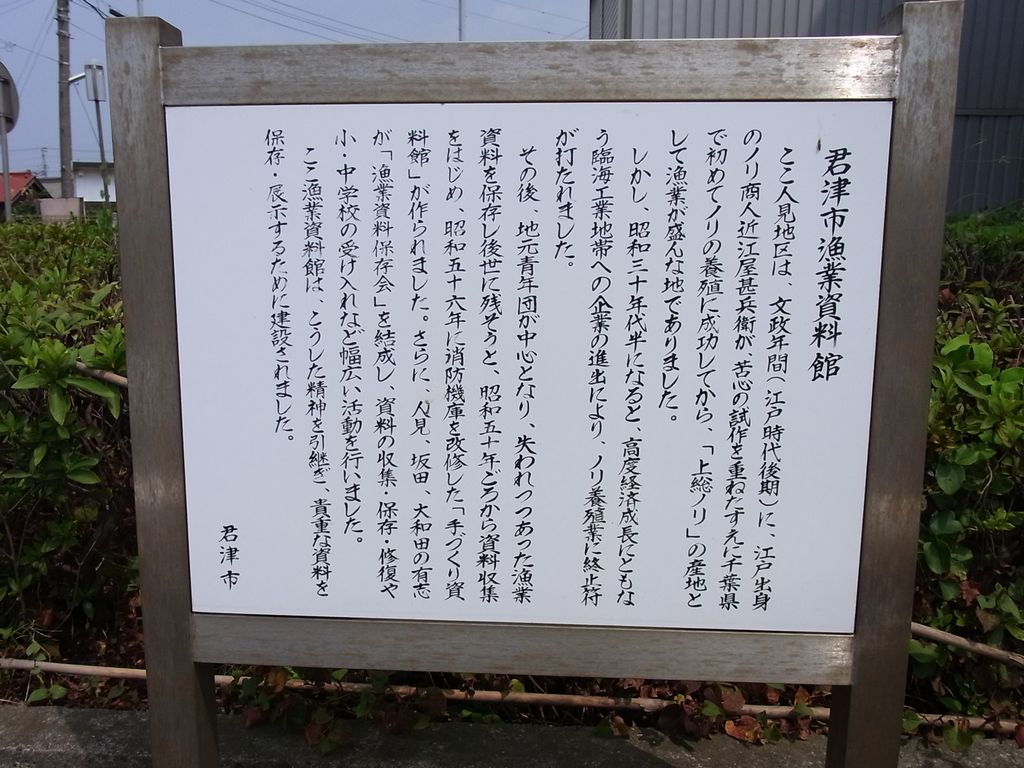 君津市漁業資料館
ここ人見地区は、文政年間(江戸時代後期)に、江戸出身
のノリ商人近江屋甚兵衛が、苦心の試作を重ねたすえに千葉県
で初めてノリの養殖に成功してから、「上総ノリ」の産地と
して漁業が盛んな地でありました。
しかし、昭和三十年代半になると、高度経済成長にともな
う臨海工業地帯への企業の進出により、ノリ養殖業に終止符
が打たれました。
その後、地元青年団が中心となり、失われつつあった漁業
資料を保存し後世に残そうと、昭和五十年ごろから資料収集
をはじめ、昭和五十六年に消防機庫を改修した「手づくり資
料館」が作られました。さらに、人見、坂田、大和田の有志
が「漁業資料保存会」を結成し、資料の収集・保存・修復や
小・中学校の受け入れなど幅広い活動を行いました。
ここ漁業資料館は、こうした精神を引継ぎ、貴重な資料を
保存・展示するために建設されました。
君津市